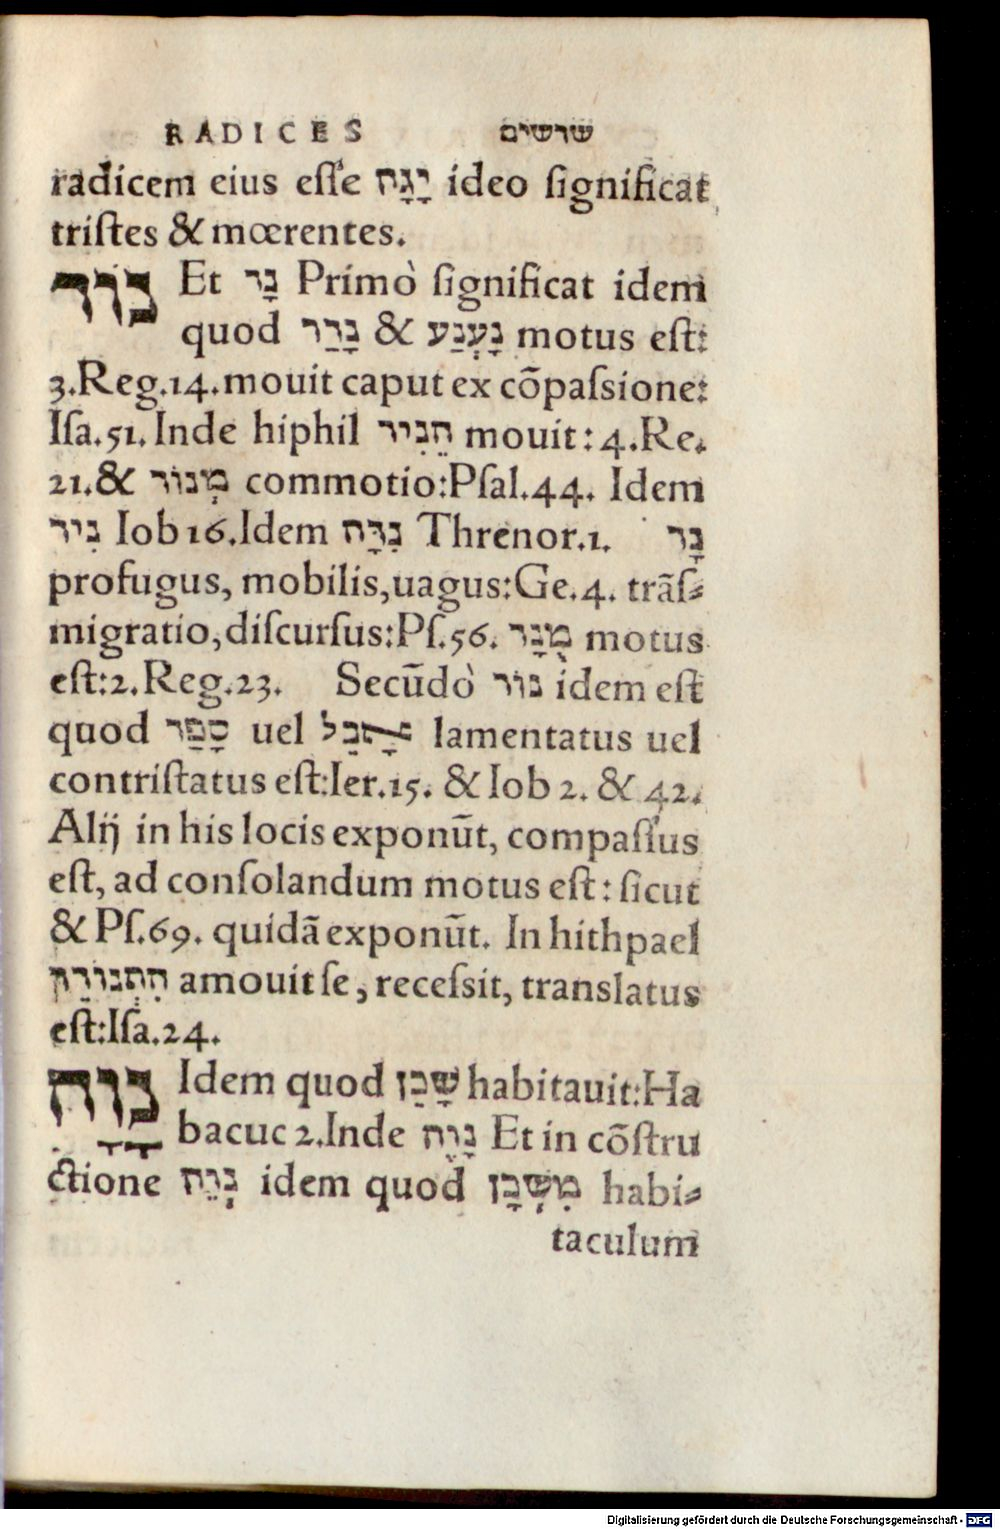 RADICES שרשים
radicem eius esſe יָגָה ideo ſignificat
triſtes & mœrentes.
נוד Et נָד Primò ſignificat idem
quod נָדַד & נָעְנַע motus eſt:
3.Reg.14.mouit caput ex cõpaſsione:
Iſa.51.Inde hiphil הֵנִיד mouit:4.Re.
21.& מָנוֹד commotio:Pſal.44. Idem
נִיד Iob 16.Idem נִדָּה Threnor.1. נָד
profugus, mobilis,uagus:Ge.4. trãſ⸗
migratio,diſcurſus:Pſ.56. מֻנָד motus
eſt:2.Reg.23. Secũdò נוּד idem eſt
quod סָפַד uel אָבַל lamentatus uel
contriſtatus eſt:Ier.15. & Iob 2. & 42.
Alij in his locis exponũt, compaſſus
eſt, ad conſolandum motus eſt: ſicut
& Pſ.69. quidã exponũt. In hithpael
הִתְנוֹדֵד amouit ſe, receſsit, translatus
eſt:Iſa.24.
נוה Idem quod שָׁכַן habitauit:Ha
bacuc 2.Inde נָוֶה Et in cõſtru
ctione נְוֵה idem quod מִשְׁכָּן habi⸗
taculum
Digitalisierung gefördert durch die Deutsche Forschungsgemeinschaft - DFG